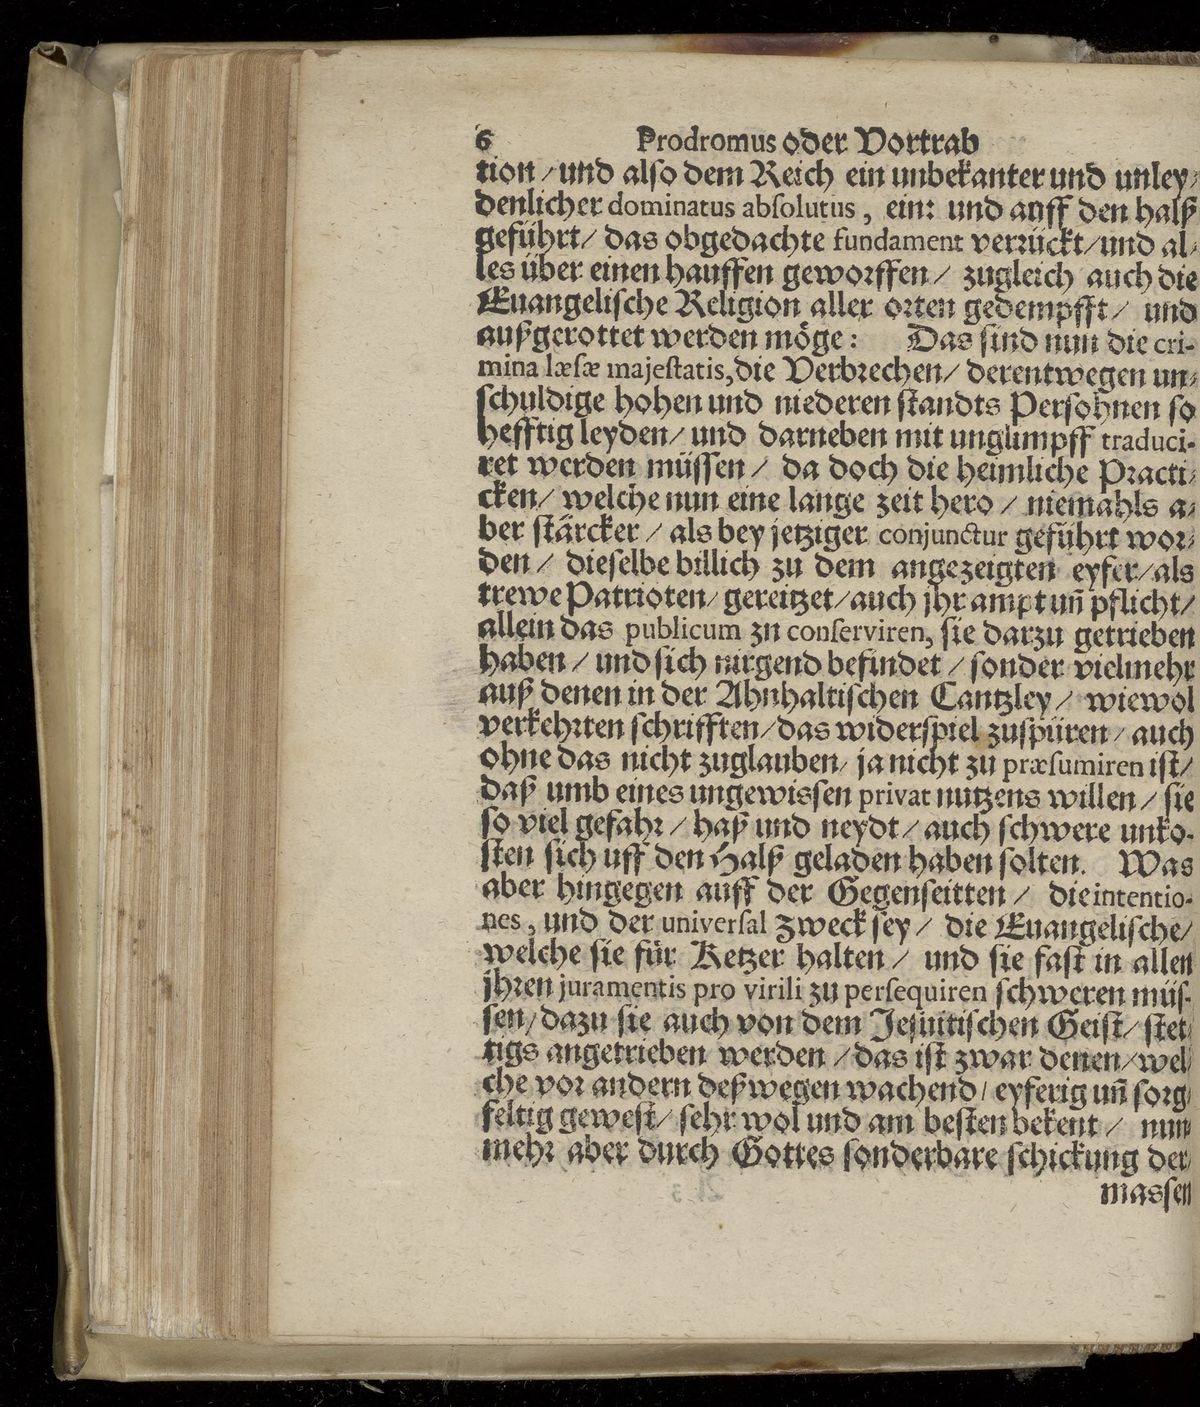 6 Prodromus oder Vortrab
tion / und also dem Reich ein unbekanter und unley⸗
denlicher dominatus absolutus, ein: und auff den halß
geführt / das obgedachte fundament verrückt / und al⸗
les über einen hauffen geworffen / zugleich auch die
Euangelische Religion aller orten gedempfft / und
außgerottet werden möge: Das sind nun die cri-
mina læsæ majestatis, die Verbrechen / derentwegen un⸗
schuldige hohen und niederen standts Persohnen so
hefftig leyden / und darneben mit unglimpff traduci-
ret werden müssen / da doch die heimliche Practi⸗
cken / welche nun eine lange zeit hero / niemahls a⸗
ber stärcker / als bey jetziger conjunctur geführt wor⸗
den / dieselbe billich zu dem angezeigten eyfer / als
trewe Patrioten / gereitzet / auch jhr ampt uñ pflicht /
allein das publicum zu conserviren, sie darzu getrieben
haben / und sich nirgend befindet / sonder vielmehr
auß denen in der Ahnhaltischen Cantzley / wiewol
verkehrten schrifften / das widerspiel zuspüren / auch
ohne das nicht zuglauben / ja nicht zu præsumiren ist /
daß umb eines ungewissen privat nutzens willen / sie
so viel gefahr / haß und neydt / auch schwere unko-
sten sich uff den Halß geladen haben solten. Was
aber hingegen auff der Gegenseitten / die intentio-
nes, und der universal zweck sey / die Euangelische /
welche sie für Ketzer halten / und sie fast in allen
jhren juramentis pro virili zu persequiren schweren müs-
sen / dazu sie auch von dem Jesuitischen Geist / stet
tigs angetrieben werden / das ist zwar denen / wel
che vor andern deßwegen wachend / eyferig uñ sorg
feltig gewest / sehr wol und am besten bekent / nun
mehr aber durch Gottes sonderbare schickung der
massen